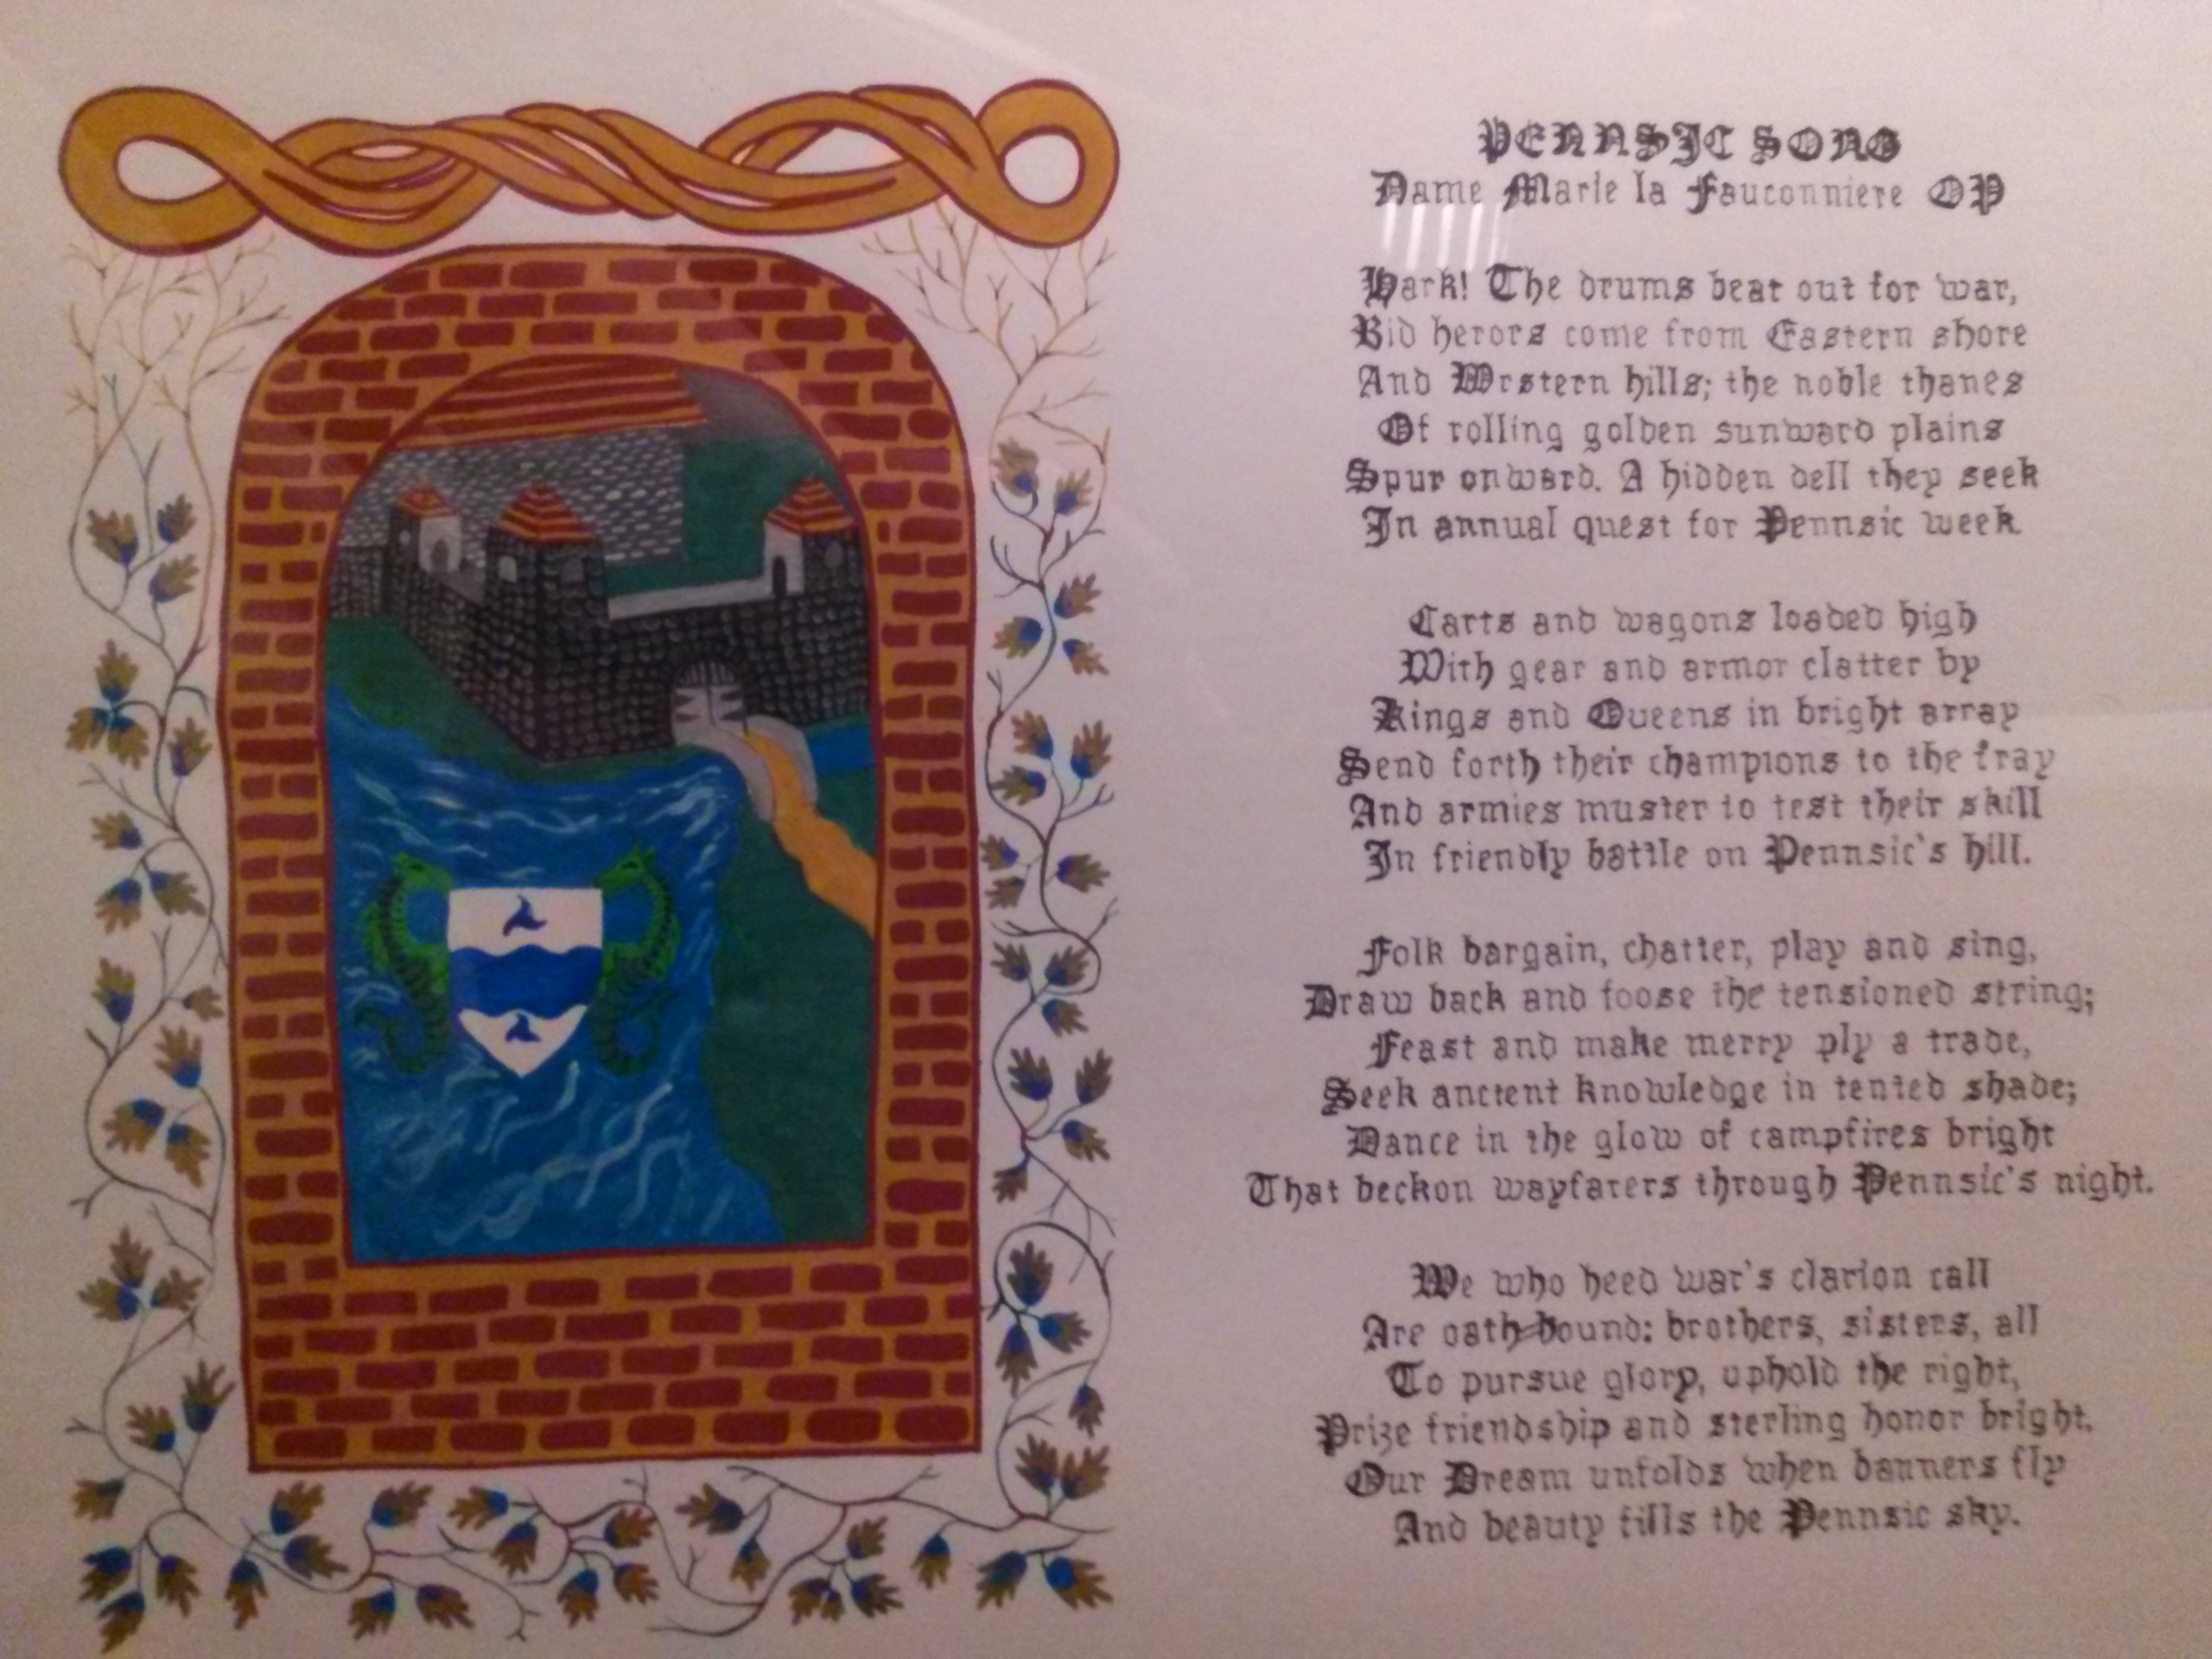 PENNSIC SONG
Dame Marie la Fauconniere OP
Hark! The drums beat out for war,
Bid herors come from Eastern shore
And Wrstern hills; the noble thanes
Of rolling golden sunward plains
Spur onward. A hidden dell they seek
In annual quest for Pennsic week.
Carts and wagons loaded high
With gear and armor clatter by
Kings and Queens in bright array
Send forth their champions to the fray
And armies muster to test their skill
In friendly battle on Pennsic's hill.
Folk bargain, chatter, play and sing,
Draw back and foose the tensioned string;
Feast and make merry ply a trade,
Seek ancient knowledge in tented shade;
Dance in the glow of campfires bright
That beckon wayfarers through Pennsic's night.
We who heed war's clarion call
Are oath-bound: brothers, sisters, all
To pursue glory, uphold the right,
Prize friendship and sterling honor bright.
Our Dream unfolds when banners fly
And beauty fills the Pennsic sky.